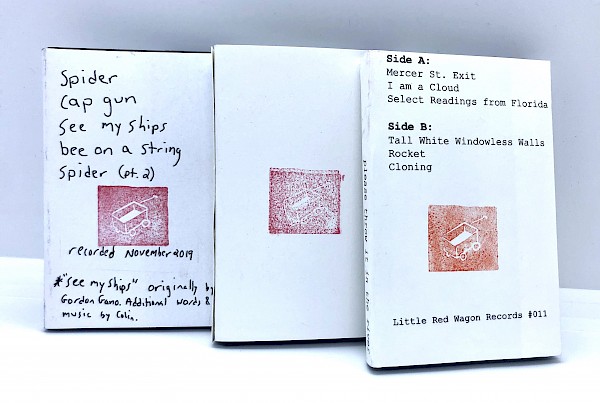 Spider
Cap gun
See my ships
bee on a string
Spider (pt. 2)
recorded November 2019
*"See my ships" originally by
Gordon Gano. Additional words &
music by Colin.
please throw it in the river
Side A:
Mercer St. Exit
I am a Cloud
Select Readings from Florida
Side B:
Tall White Windowless Walls
Rocket
Cloning
Little Red Wagon Records #011